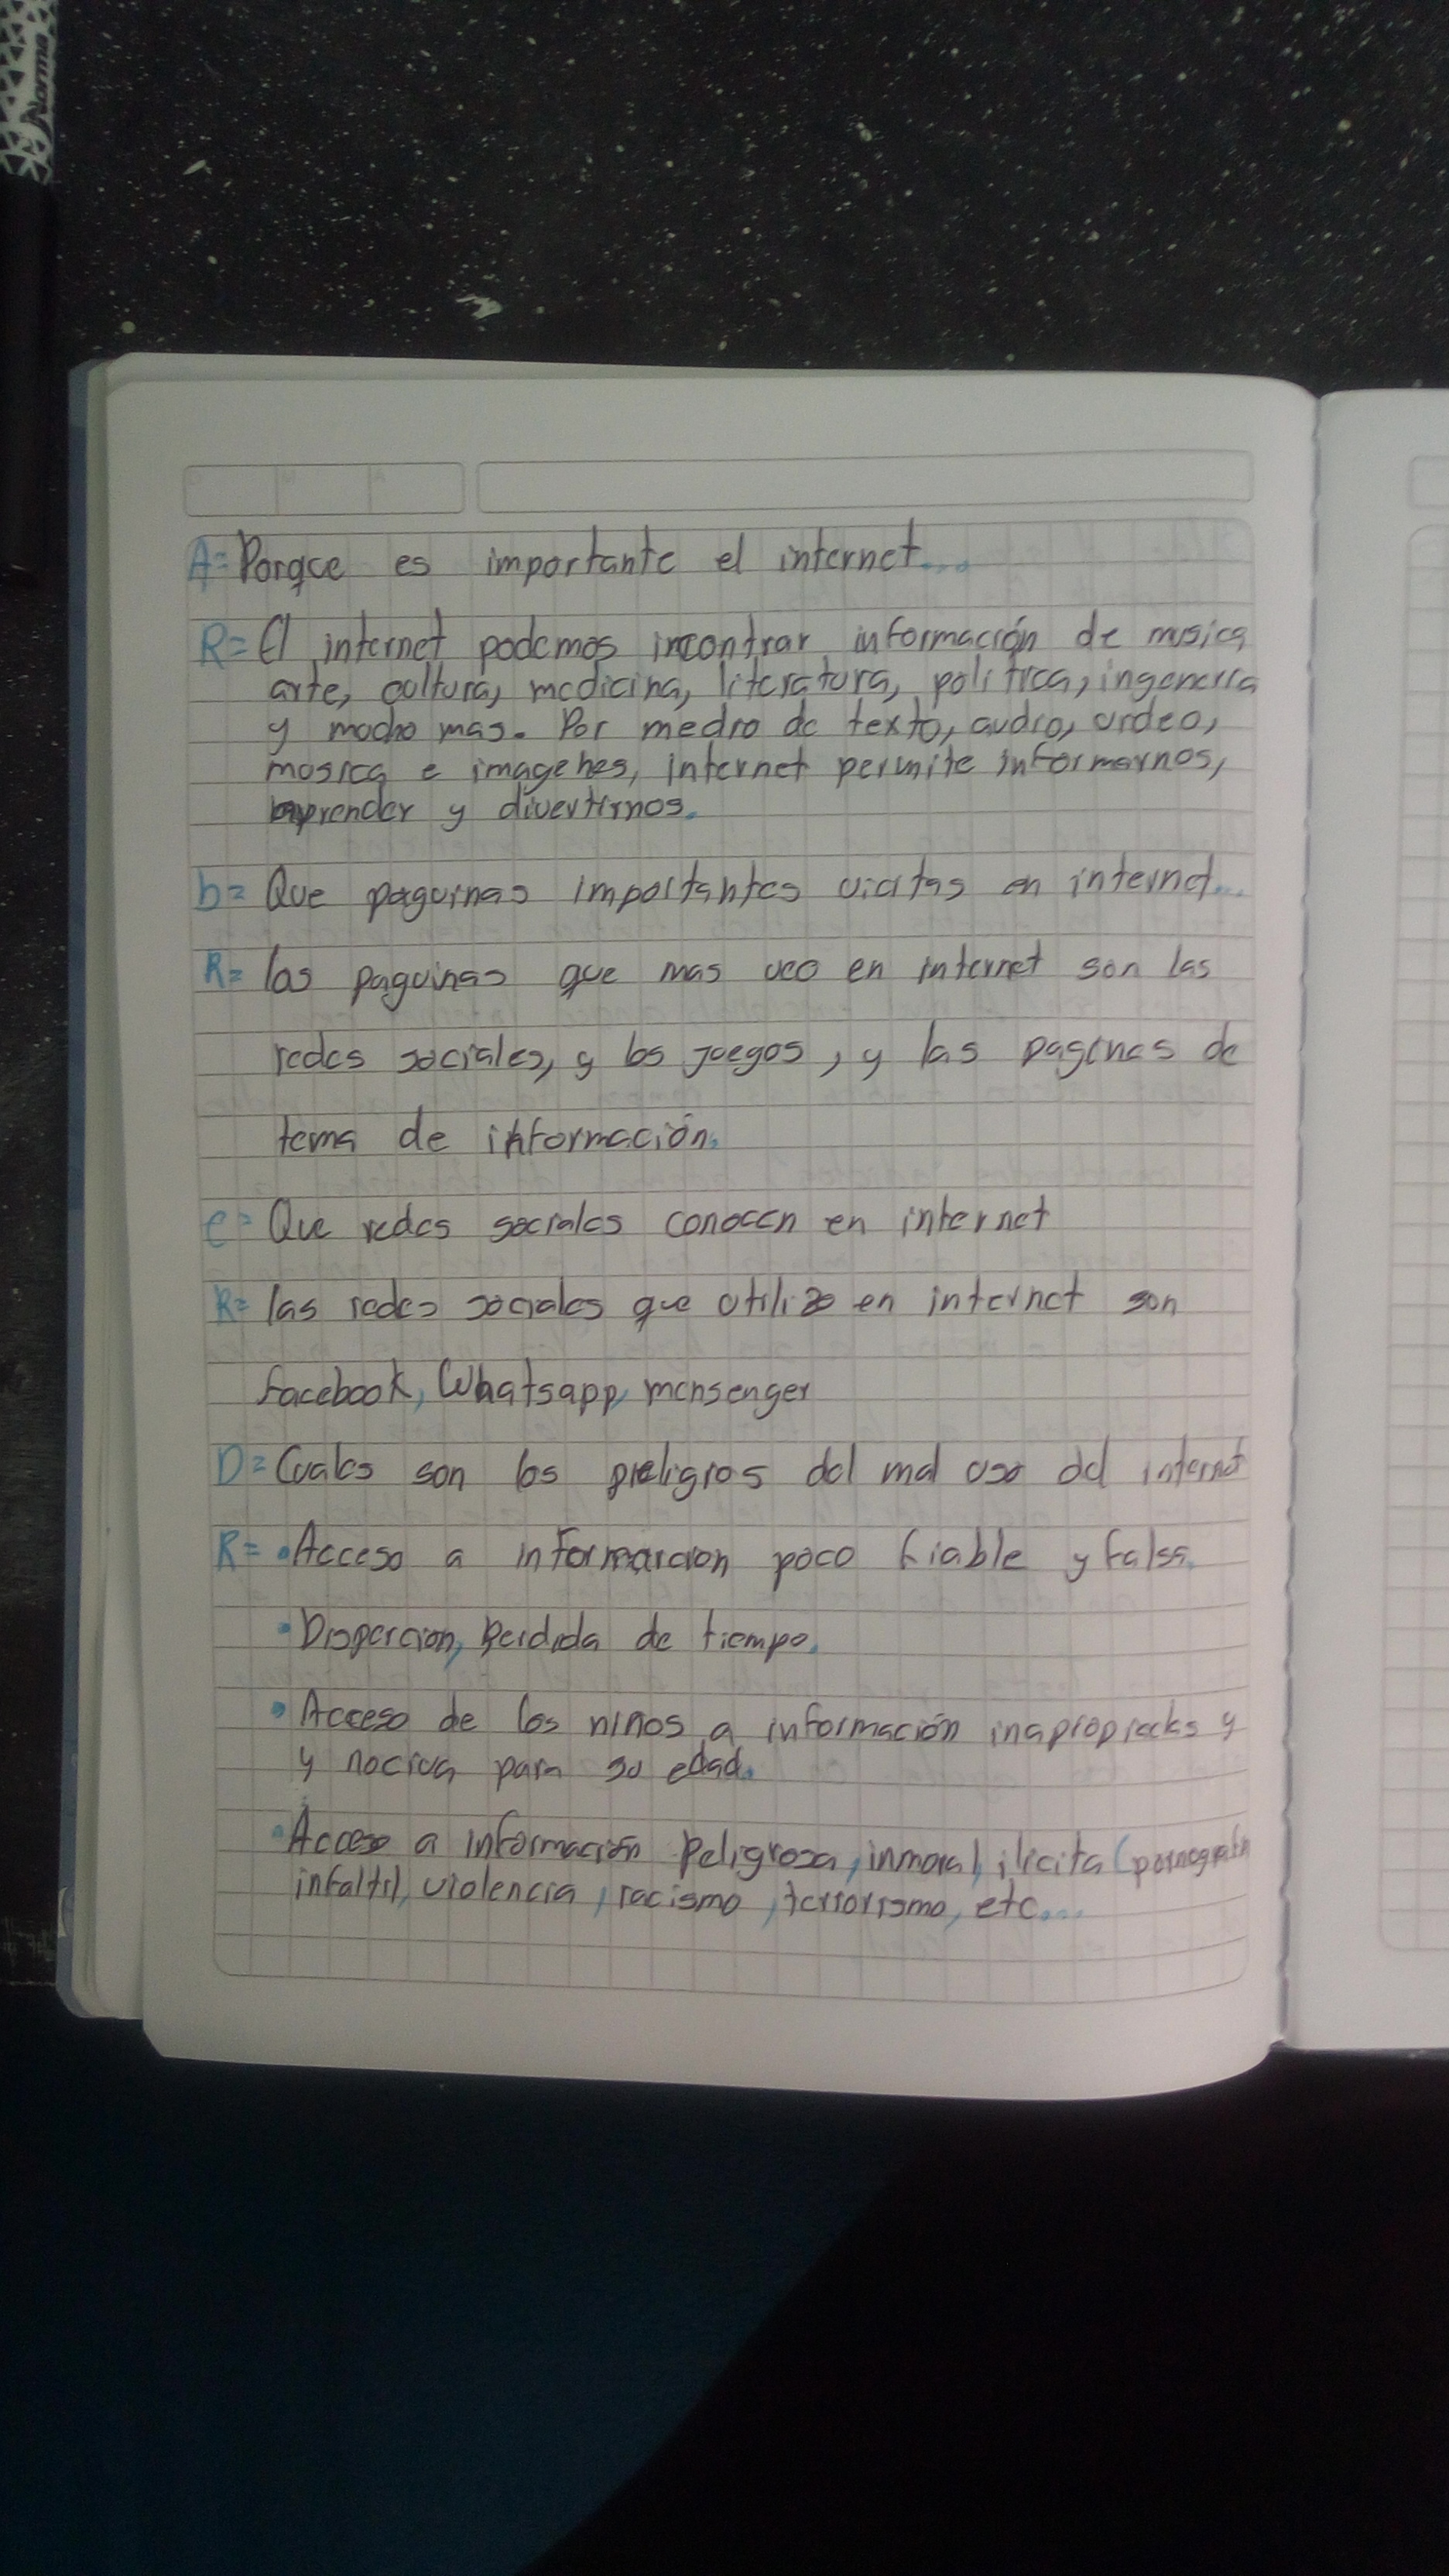 Norma
A= Porqce es importante el internet...
R= El internet podemos incontrar información de musica
arte, cultura, medicina, literatura, politica, ingeneria
y mocho mas. Por medio de texto, audio, video,
mosica e imagenes, internet permite informarnos,
aprender y divertirnos.
b= Que paguinas importantes vicitas en internet...
R= las paguinas que mas veo en internet son las
redes sociales, y los juegos, y las paginas de
tema de información.
c= Que redes sociales conocen en internet
R= las redes sociales que utilizo en internet son
facebook, Whatsapp, mensenger
D= Cuales son los peligros del mal uso del internet
R= • Acceso a informarcion poco fiable y falsa.
• Dispercion, Perdida de tiempo.
• Acceso de los niños a información inapropiada y
y nociva para su edad.
• Acceso a información Peligrosa, inmoral, ilicita (pornografia
infaltil, violencia, racismo, terrorismo, etc...